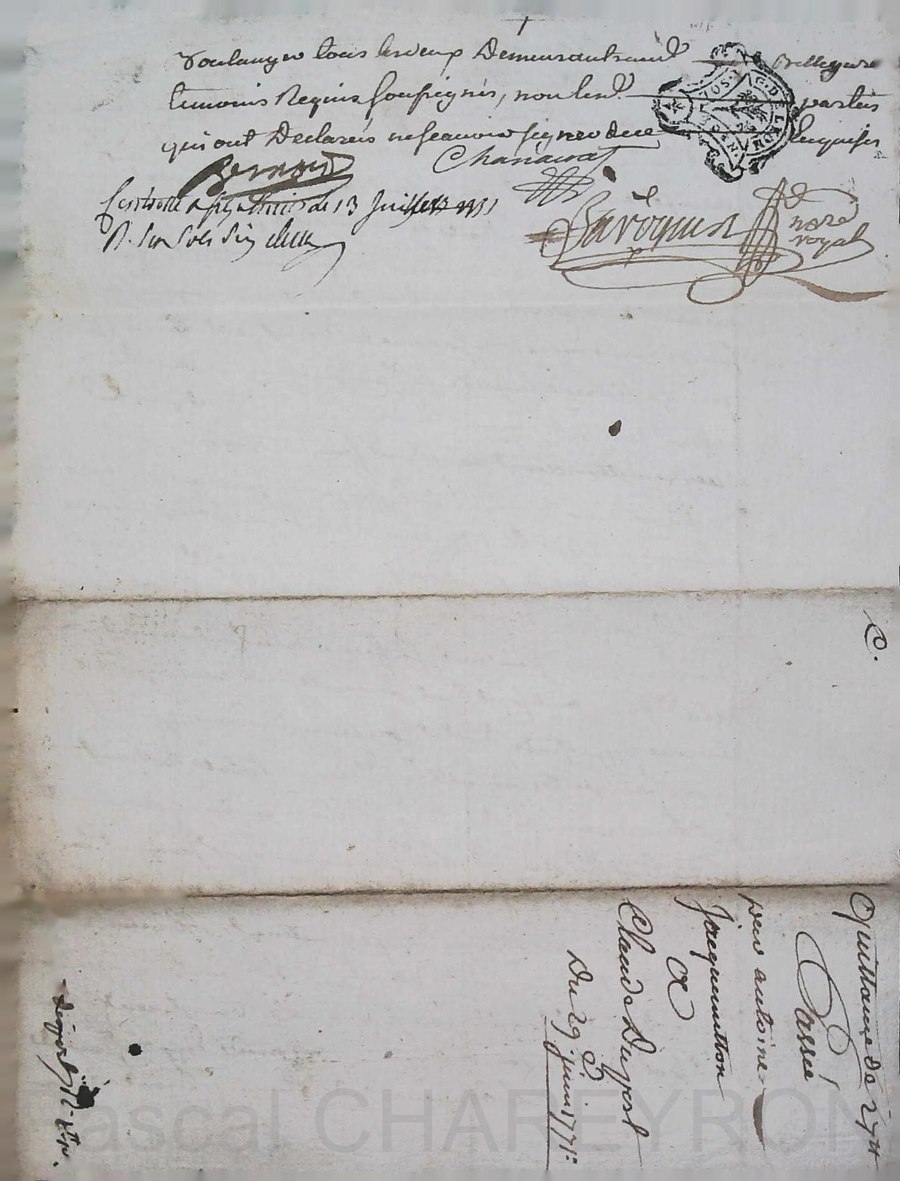 Boulanger tous les deux Demeurants aud Bellegarde
temoins Requis soussignés, non lesd. parties
qui ont Declarés ne scavoir signer de ce Enquises
Chanavat
Laroque
nore
royal
Controllé a le 13 Juillet 1771
R. Six Sols Six
G. DE LYON
C.
Quittance de
Passée
par antoine
Jacquemetton
a
Claude Duport
Du 29e juin 1771:
Pascal CHAREYRON